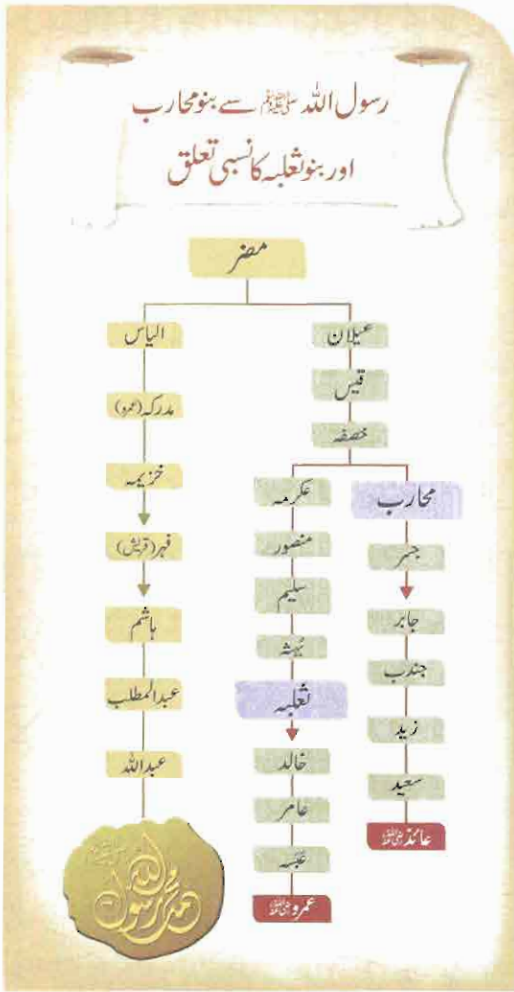 رسول اللہ ﷺ سے بنو محارب
اور بنو ثعلبہ کا نسبی تعلق
مضر
عیلان
قیس
خصفہ
محارب
جسر
جابر
جندب
زید
سعید
عائذ رضی اللہ عنہ
عکرمہ
منصور
سلیم
بُہثہ
ثعلبہ
خالد
عامر
عَبَسہ
عمرو رضی اللہ عنہ
الیاس
مدرکہ (عمرو)
خزیمہ
فہر (قریش)
ہاشم
عبدالمطلب
عبداللہ
محمد رسول اللہ ﷺ